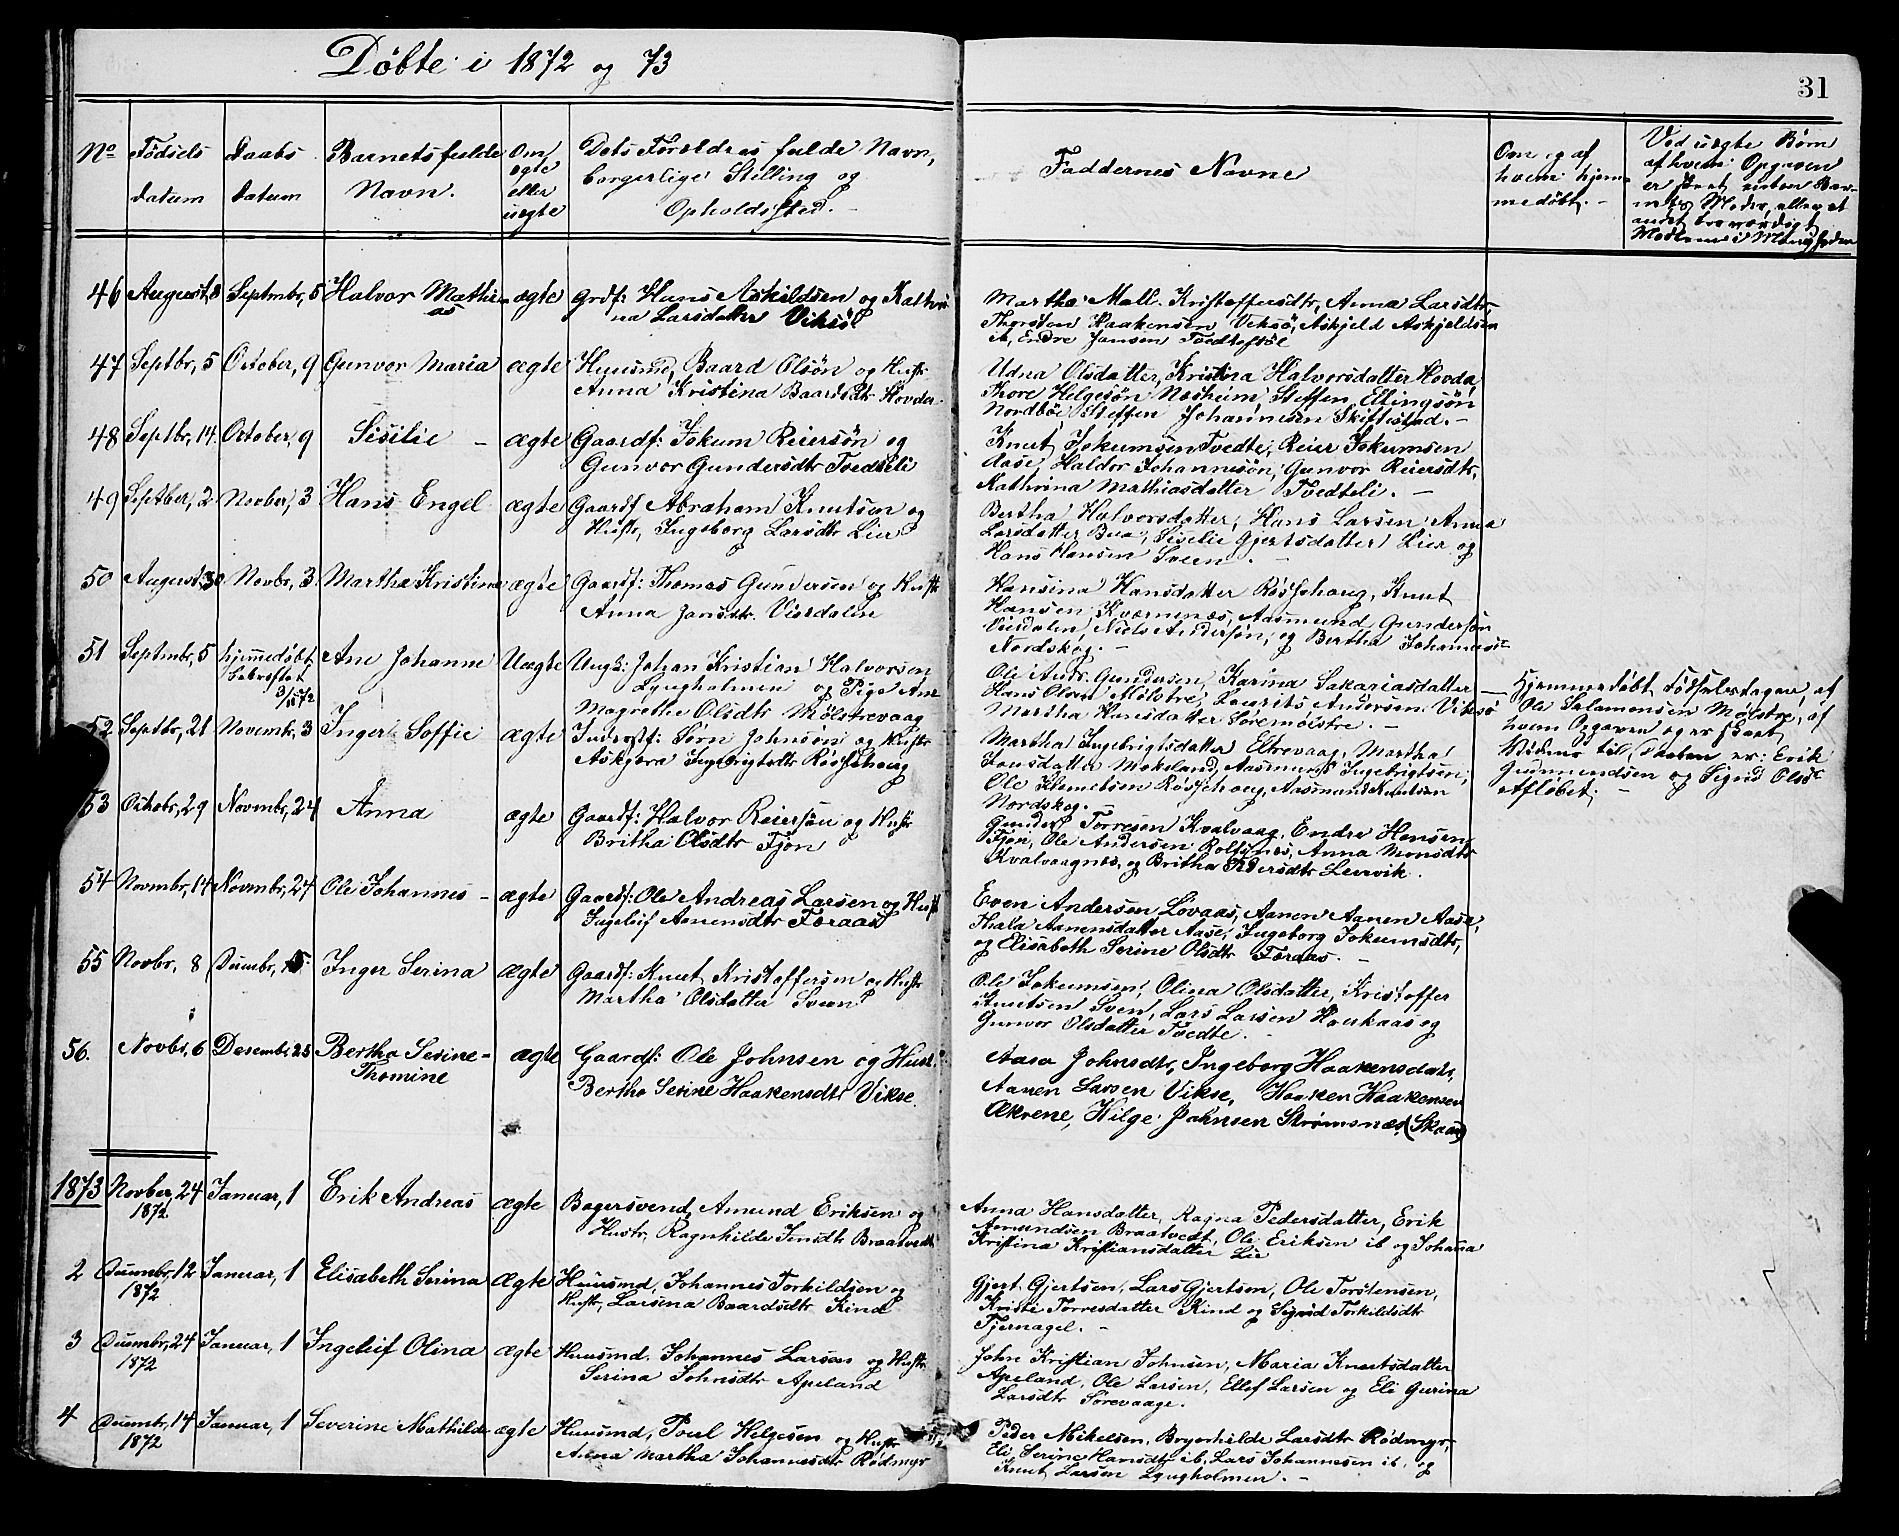 Döbte i 1872 og 73
31
No
Födsels datum
Daabs datum
Barnets fulde Navn.
Om ægte eller uægte
Dets Forældres fulde Navn, borgerlige Stilling og Opholdssted.
Faddernes Navne
Om og af hvem hjemmedöbt.
Ved uægte Börn af hvem Opgaven er skeet
46 August, 8 Septmbr, 5 Halvor Mathias ægte Grdf: Hans Askildsen og Kathrina Larsdatter Viksö
Martha Mall. Kristoffersdtr, Anna Larsdtr,
Thorsten Haakensen Veksö, Askjeld Askjeldsen
Endre Jansen
47 Septbr, 5 October, 9 Gunvor Maria ægte Huusmd, Baard Olsön og Hustr
Anna Kristina Baardsdtr Hovda
Udna Olsdatter, Kristina Halvorsdatter Hovda
Thore Helgesön Næsheim, Steffen Ellingsön
Nordböe, Steffen Johannesen Skiftestad.
48 Septbr, 14 October, 9 Sisilie - ægte Gaardf: Jokum Reiersön og
Gunvor Gundersdtr Tvedteli
Knut Jokumsen Tvedte, Reier Jokumsen
Aase, Haldor Johannesön, Gunvor Reiersdtr,
Kathrina Mathiasdatter Tvedteli. -
49 Septber, 2 Novber, 3 Hans Engel ægte Gaardf Abraham Knutsen og
Hustr, Ingeborg Larsdtr Lier
Bertha Halvorsdatter, Hans Larsen, Anna
Larsdatter Bua, Siselie Gjertsdatter Lier og
Hans Hansen Sveen. -
50 August, 30 Novbr, 3 Martha Kristina ægte Gaardf: Thomas Gundersen og Hustr
Anna Jansdtr. Visdalen
Hansina Hansdatter Rösshaug, Knut
Hansen Kvernenæs, Aasmund Gundersön
Visdalen, Niels Andersön, og Bertha
Nordskog. -
51 Septmbr, 5 hjemmedöbt, Ane Johanne Uægte Ungk: Johan Kristian Halvorsen
Lyngholmen og Pige Ane
Magrethe Olsdtr Mölstrevaag
Ole Andr. Gundersen, Karina Sakariasdatter
Hans Olsen Mölstre, Laurits Andersen Viksö
Martha Hansdatter Söremölstre. -
Hjemmedöbt Födselsdagen af
Ole Salamonsen Mölstre, af
hvem Opgaven og er skeet
Vidner til er: Erik
Gudmundsen og Sigrid Olsdtr
52 Septbr, 21 Novembr, 3 Inger Soffie ægte Sörn Johnsön og Hustr
Askjera Ingebrigtsdtr Rösshaug
Martha Ingebrigtsdatter Eltrevaag, Martha
Jansdatter Mokeland, Aasmund Ingebrigtsen,
Ole Klemetsen Rösshaug, Aasmund Knutsen
Nordskog. -
53 Octobr, 29 Novembr, 24 Anna ægte Gaardf: Halvor Reiersön og Hustr
Britha Olsdtr Fjon
Gunder Torresen Kvalvaag, Endre Hansen
Fjon, Ole Andersen Rolfsnes, Anna Monsdtr
Kvalvaagnæs, og Britha Pedersdtr Leirvik.
54 Novmbr, 14 Novmbr, 24 Ole Johannes - ægte Gaardf: Ole Andreas Larsen og Hustr
Ingeleif Aanensdtr Føraas
Even Andersen Lovaas, Aanen Aanen Aase,
Thala Aanensdatter Aase, Ingeborg Jokumsdtr,
og Elisabeth Serine Olsdtr Føraas. -
55 Novbr, 8 Inger Serina ægte Gaardf: Knut Kristoffersen og Hustr
Martha Olsdatter Sveen
Ole Jokumsen, Olina Olsdatter, Kristoffer
Knutsen Sven, Lars Larsen Haukaas og
Gunvor Olsdatter Tvedte.
56. Novbr, 6 Desembr 25 Bertha Serine- Thomine ægte Gaardf: Ole Johnsen og Hust.
Bertha Serine Haakensdtr Vikse.
Aasa Johnsdtr, Ingeborg Haakensdatr,
Aanen Larsen Vikse, Haaken Haakensen
Økrene, Hilge Johnsen Strømsnæs, (Skaar)
1873 Novber, 24 1872 Januar, 1 Erik Andreas ægte Bagersvend Amund Eriksen og
Hustr, Ragnhilde Braatvedt
Anna Hansdatter, Ragna Pedersdatter, Erik
Amundsen Braatvedt, Ole Eriksen ib og Johana
Kristina Kristiansdatter Lie
2 Decmbr, 12 1872 Januar, 1 Elisabeth Serina ægte Huusmd, Johannes Torkildsen og
Hustr, Larsina Baardsdtr Kind
Gjert Gjertsen, Lars Gjertsen, Ole Torstensen,
Kristi Torresdatter Kind og Sigrid Torkildsdtr
Tjernagel. -
3 Decmbr, 24 1872 Januar, 1 Ingeleif Olina ægte Huusmd. Johannes Larsen og Hustr
Serina Johnsdtr Apeland
John Kristian Johnsen, Maria Knutsdatter
Apeland, Ole Larsen, Ellef Larsen og Eli Gurina
Larsdtr Sörevaage.
4 Decmbr, 14 1872 Januar, 1 Severine Mathilde ægte Huusmd, Poul Helgesen og Hustr
Anna Martha Johannesdtr Rödmyr
Peder Mikelsen, Brynhilde Larsdtr Rödmyr,
Eli Serine Hansdtr ib, Lars Johannesen ib, og
Knut Larsen Lyngholmen. -